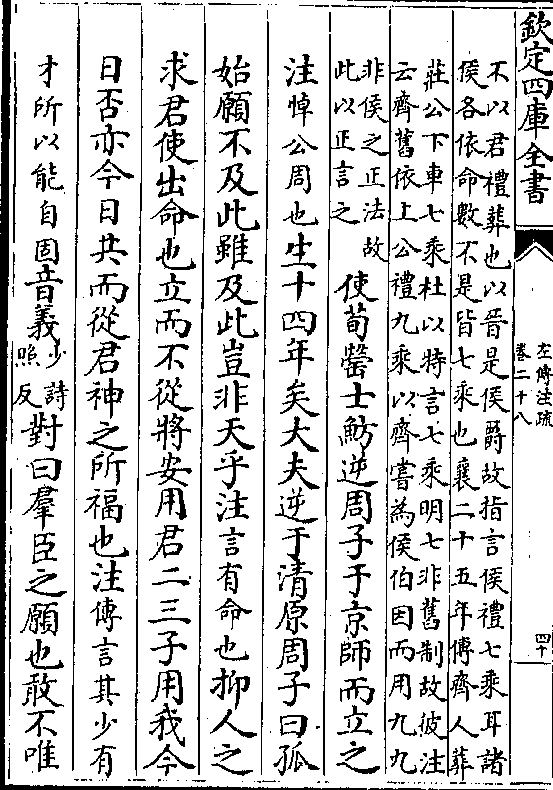 欽定四庫全書
左傳注疏
卷二十八
四十
不以君禮葬也以晉是侯爵故指言侯禮七乘耳諸
侯各依命數不是皆七乘也襄二十五年傳齊人葬
莊公下車七乘杜以特言七乘明七非舊制故彼注
云齊舊依上公禮九乘以齊嘗為侯伯因而用九九
非侯之正法故
此以正言之
使荀罃士魴逆周子于京師而立之
注悼公周也生十四年矣大夫逆于清原周子曰孤
始願不及此雖及此豈非天乎注言有命也抑人之
求君使出命也立而不從將安用君二三子用我今
日否亦今日共而從君神之所福也注傳言其少有
才所以能自固音義少詩
照反
對曰羣臣之願也敢不唯